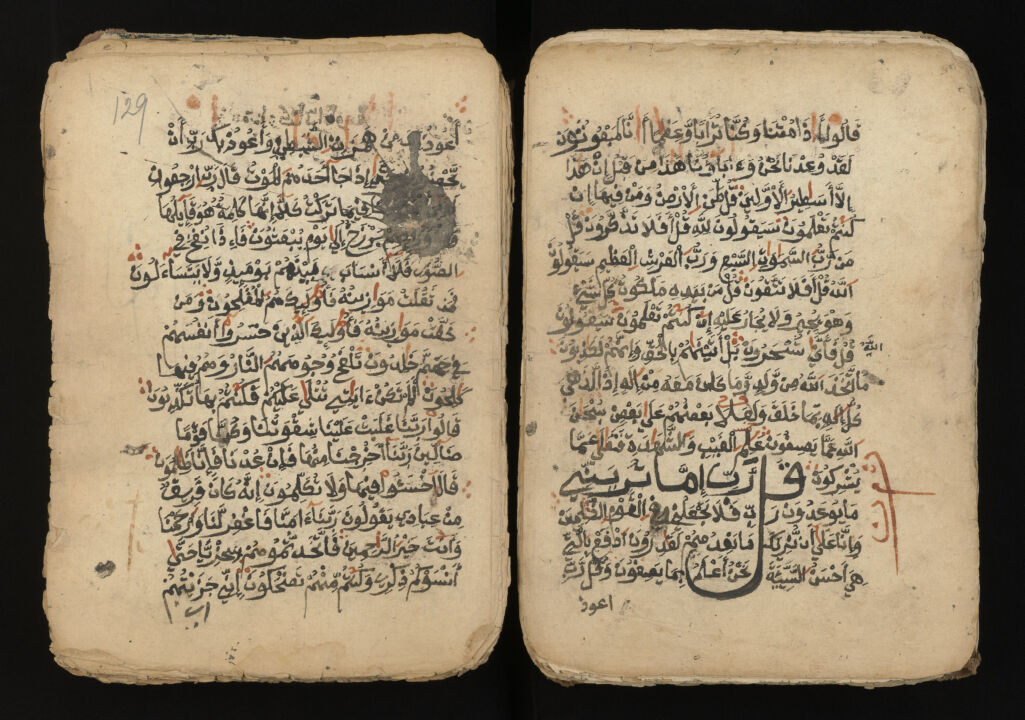 قالوا أءذا متنا وكنا ترابا وعظما أءنا لمبعوثون
لقد وعدنا نحن وءاباؤنا هذا من قبل إن هذا
إلا أسطير الأولين قل لمن الأرض ومن فيها إن
كنتم تعلمون سيقولون لله قل أفلا تذكرون قل
من رب السموت السبع ورب العرش العظيم سيقولون
الله قل أفلا تتقون قل من بيده ملكوت كل شيء
وهو يجير ولا يجار عليه إن كنتم تعلمون سيقولون
الله قل فأنى تسحرون بل أتينهم بالحق وإنهم لكذبون
ما اتخذ الله من ولد وما كان معه من إله إذا لذهب
كل إله بما خلق ولعلا بعضهم على بعض سبحن
الله عما يصفون علم الغيب والشهدة فتعلى عما
يشركون قل رب إما تريني
ما يوعدون رب فلا تجعلني في القوم الظلمين
وإنا على أن نريك ما نعدهم لقدرون ادفع بالتي
هي أحسن السيئة نحن أعلم بما يصفون وقل رب
اعوذ
129
أعوذ من همزت الشيطين وأعوذ بك رب أن
يحضرون إذا جاء أحدهم الموت قال رب ارجعون
فيما تركت كلا إنها كلمة هو قائلها
برزخ إلى يوم يبعثون فإذا نفخ في
الصور فلا أنساب بينهم يومئذ ولا يتساءلون
فمن ثقلت موازينه فأولئك هم المفلحون ومن
خفت موازينه فأولئك الذين خسروا أنفسهم
في جهنم خلدون تلفح وجوههم النار وهم فيها
كلحون ألم تكن ءايتي تتلى عليكم فكنتم بها تكذبون
قالوا ربنا غلبت علينا شقوتنا وكنا قوما
ضالين ربنا أخرجنا منها فإن عدنا فإنا ظلمون
قال اخسئوا فيها ولا تكلمون إنه كان فريق
من عبادي يقولون ربنا ءامنا فاغفر لنا وارحمنا
وأنت خير الرحمين فاتخذتموهم سخريا حتى
أنسوكم ذكري وكنتم منهم تضحكون إني جزيتهم